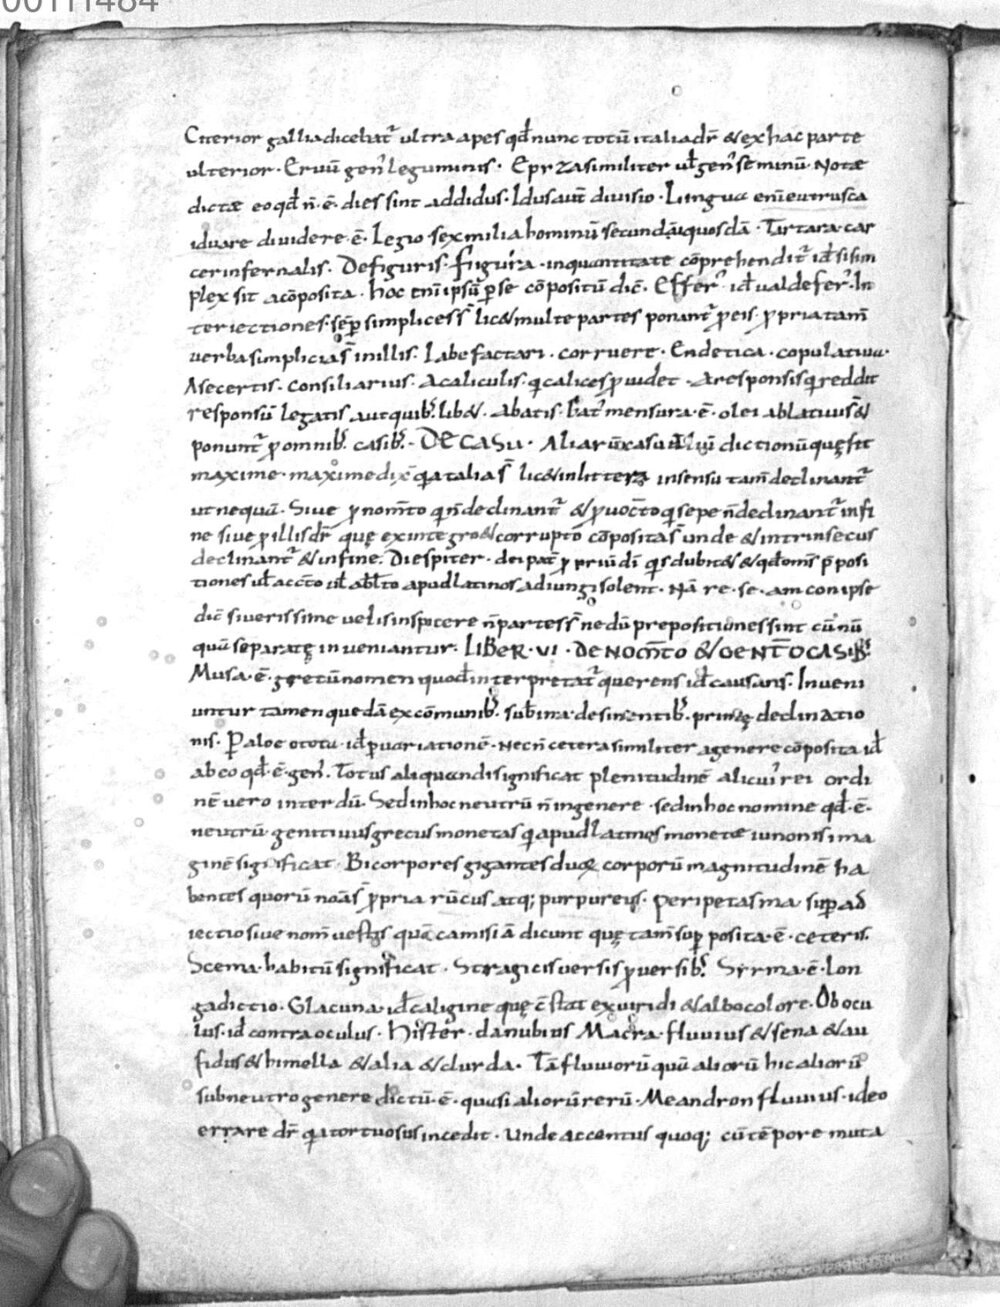 00111484
Citerior gallia dicebat᷒ ultra apes qđ nunc totū italia dr̄ & ex hac parte
ulterior · Eruū gen᷒ leguminis · similiter ul̄ gen᷒ seminū Notæ
dictæ eo qđ n̄ · ē · dies sint addidus · Idus aut̄ diuisio · Lingua enī eutrusca
iduare diuidere · ē · Legio · sex milia hominū secundā quosdā · Tartara · car
cer infernalis · De figuris · figura · in quantitate cōprehendit᷒ iđ si sim
plex sit a cōposita · hoc enī ipsū ꝑ se cōpositū dic̄ · Effer᷒ · iđ ualde fer᷒ · In
teriectiones · sēꝑ simplices s̄ lic& multe partes ponant᷒ ꝓ eis · ꝓpria tam̄
uerba simplicia s̄ in illis · Labefactari · corruere · Endetica · copulatiua ·
A secertis · consiliarius · A caliculis · qi calices ꝓuidet · A responsis qi reddit
responsū legatis aut quib; lib& · Abatis · bat᷒ mensura · ē · olei ablatiuus &
ponunt᷒ ꝓ omnib; casib; · DE CASU · dictionū quę fit
maxime · maxime dix̄ qia talia s̄ lic& in litterꝫ in sensu tam̄ declinant᷒
ut nequā · Siue ꝓ nom̄to qi n̄ declinant᷒ & ꝓ uoc̄to qi sepe n̄ declinant᷒ in fi
ne siue ꝓ illis dr̄ quę ex integro & corrupto cōposita s̄ unde & intrinsecus
declinant᷒ & in fine · Diespiter · dei pat᷒ qis dubit& & qđ om̄s p̄posi
tiones ul̄ acc̄to ul̄ abl̄to apud latinos adiungi solent · Nā re · se · am con ipse
dic̄ si uerissime uelis inspicere n̄ partes s̄ nedū prepositiones sint cū nū
quā separatę inueniantur · LIBER · VI · DE NOM̄TO & GEN̄TO CASIB;
Musa · ē · grecū nomen quod interpretat᷒ querens iđ causans · Inueni
untur tamen quedā ex cōmunib; sub ina desinentib; primę declinatio
nis · Paloe ototu · iđ ꝑ uariationē · Nec n̄ cetera similiter a genere cōposita iđ
ab eo qđ · ē · gen᷒ · Totus aliquandi significat plenitudinē alicui᷒ rei ordi
nē uero interdū · Sed in hoc neutrū n̄ in genere · sed in hoc nomine qđ · ē ·
neutrū genitiuus grecus monetas qi apud latinos monetæ iunonis ima
ginē significat · Bicorpores gigantes duoꝝ corporū magnitudinē ha
bentes quorū noā s̄ ꝓpria rūcus atq; purpureus · Peripetasma · suꝑad
iectio siue nom̄ uestis quā camisiā dicunt quę tam̄ suꝑposita · ē · ceteris ·
Scema · habitū significat · Stragicis uersis ꝓ uersib; Syrma · ē · lon
ga dictio · Glacuna · iđ caligine quę c̄stat ex uiridi & albo colore · Obocu
lus · iđ contra oculus · Hister · danubius Macra · fluuius & sena & au
fidus & himella & alia & durda · Tā fluuiorū quā aliorū hic aliorū
sub neutro genere dictū · ē · quasi aliorū rerū · Meandron fluuius · ideo
errare dr̄ qia tortuosus incedit · Unde accentus quoq; cū tēpore muta